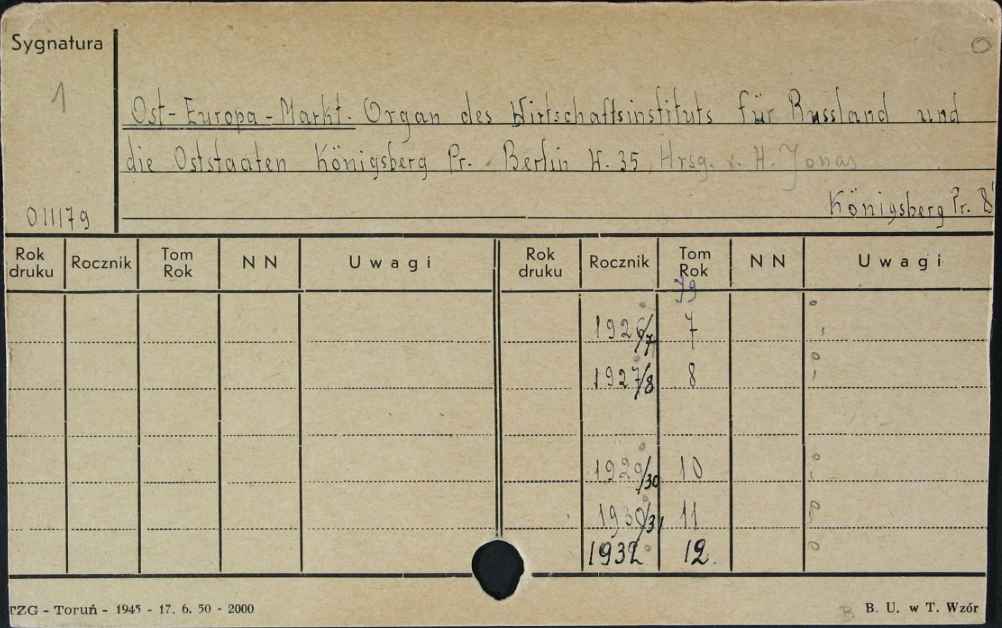 Sygnatura
1
Ost-Europa-Markt. Organ des Wirtschaftsinstituts für Russland und
die Oststaaten Königsberg Pr. Berlin W. 35, Hrsg. v. H. Jonas
Königsberg Pr. 8
011179
Rok druku Rocznik Tom Rok NN Uwagi Rok druku Rocznik Tom Rok NN Uwagi
79
1926/7 7
1927/8 8
1929/30 10
1930/31 11
1932 12.
TZG - Toruń - 1945 - 17. 6. 50 - 2000
B. U. w T. Wzór